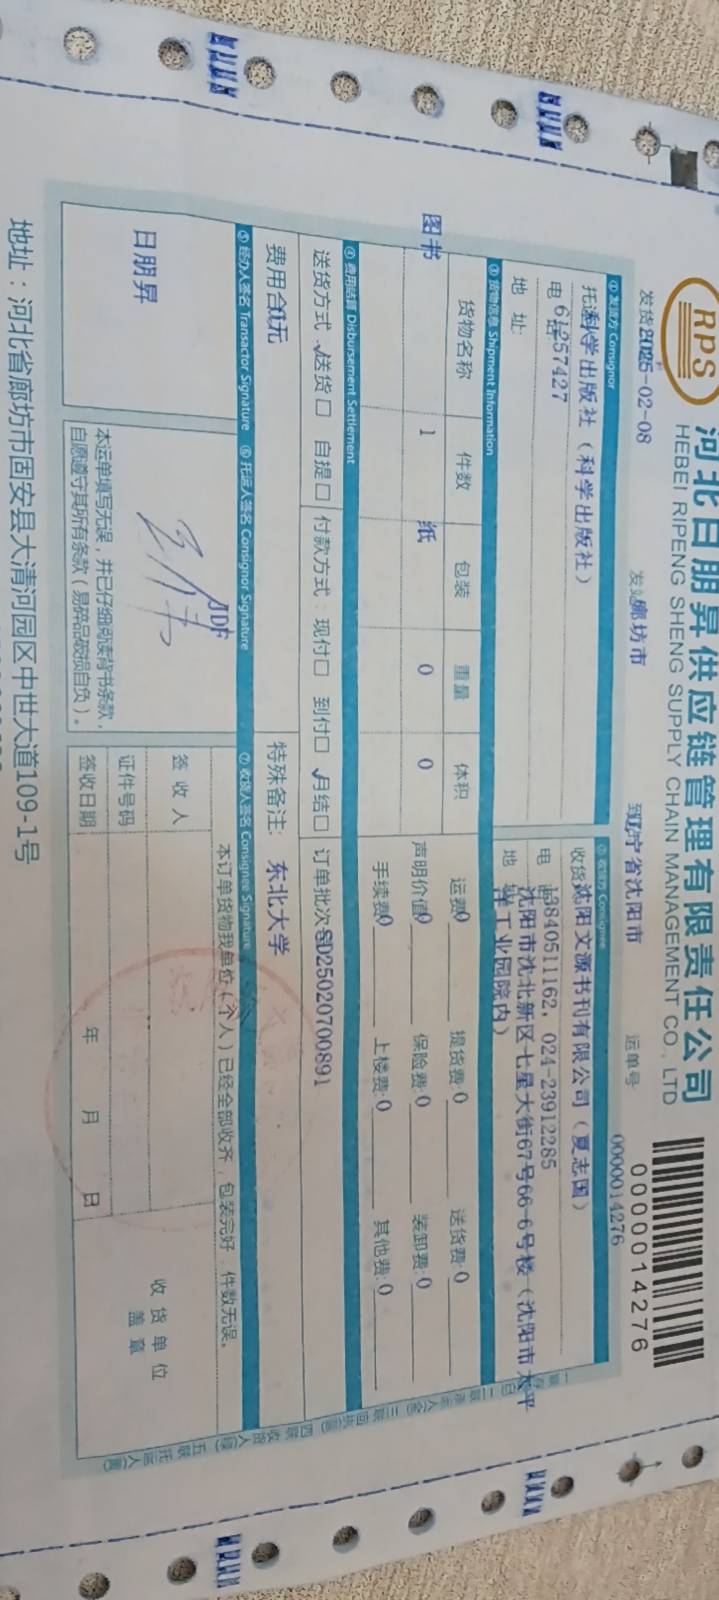 RPS
河北日朋昇供应链管理有限责任公司
HEBEI RIPENG SHENG SUPPLY CHAIN MANAGEMENT CO., LTD
0000014276
发货 2025-02-08 发站 廊坊市 到 辽宁省沈阳市 运单号 0000014276
① 发货方 Consignor ② 收货方 Consignee
托运 科学出版社（科学出版社） 收货 沈阳文源书刊有限公司（夏志国）
电话 61257427 电 13840511162, 024-23912285
地 址: 地 沈阳市沈北新区七星大街67号66-6号楼（沈阳市太平
洋工业园院内）
③ 货物信息 Shipment Information
货物名称 件数 包装 重量 体积 运费:0 提货费:0 送货费:0
图书 1 纸 0 0 声明价值:0 保险费:0 装卸费:0
手续费:0 上楼费:0 其他费:0
④ 费用结算 Disbursement Settlement
送货方式:√送货□ 自提□ 付款方式:现付□ 到付□ √月结□ 订单批次 SD25020700891
费用合 0元 特殊备注: 东北大学
⑤ 经办人签名 Transactor Signature ⑥ 托运人签名 Consignor Signature ⑦ 收货人签名 Consignee Signature
日朋昇
JDF
本运单填写无误，并已仔细阅读背书条款，
自愿遵守其所有条款（易碎品破损自负）。
本订单货物我单位（个人）已经全部收齐，包装完好，件数无误。
签收人
证件号码
签收日期 年 月 日
收货单位
盖章
地址：河北省廊坊市固安县大清河园区中世大道109-1号